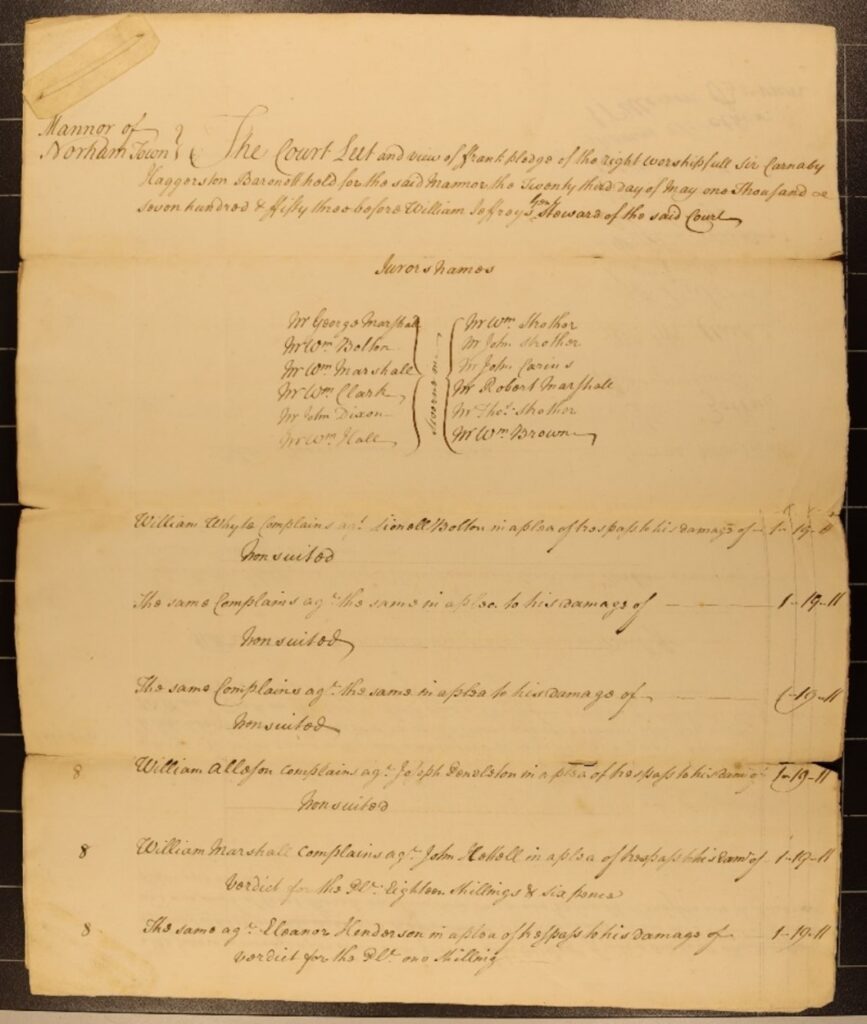 Mannor of
Norham Town
The Court Leet and view of frankpledge of the right worshipfull Sir Carnaby
Haggerston Baronett held for the said Mannor the Twenty third day of May one Thousand
seven hundred & fifty three before William Jeffreys Gen.t Steward of the said Court
Jurors names
Mr George Marshall
Mr Wm Bolton
Mr Wm Marshall
Mr Wm Clark
Mr John Dixon
Mr Wm Hall
Mr Wm Strother
Mr John Strother
Mr John Carins
Mr Robert Marshall
Mr Tho.s Strother
Mr Wm Brown
William Whyte Complains ag.t Lionell Bolton in a plea of trespass to his damage of 1-19-11
Nonsuited
The same Complains ag.t the same in a plea to his damage of 1-19-11
Nonsuited
The same Complains ag.t the same in a plea to his damage of 1-19-11
Nonsuited
8 William Alleson Complains ag.t Joseph in a plea of trespass to his dam: of 1-19-11
Nonsuited
8 William Marshall Complains ag.t John in a plea of trespass to his dam: of 1-19-11
Verdict for the Pl.t Eighteen Shillings & six pence
8 The same ag.t Eleanor Henderson in a plea of trespass to his damage of 1-19-11
verdict for the Pl.t one Shilling